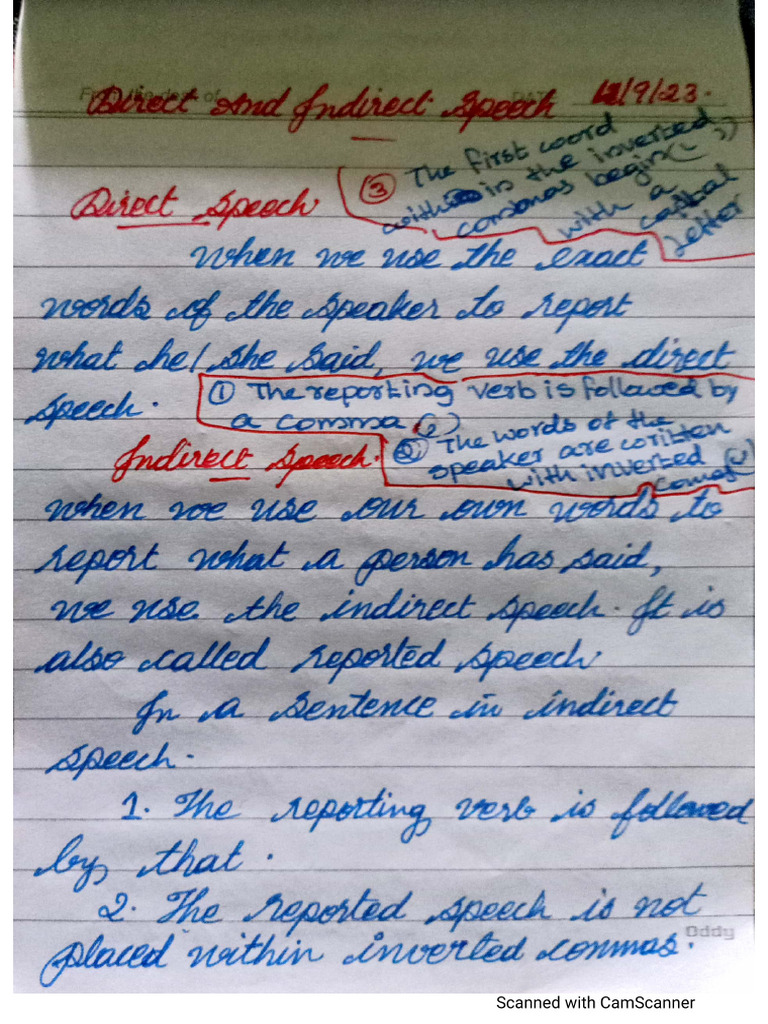 Direct and Indirect Speech 12/9/23.
Direct Speech
③ The first word
within the inverted
commas begin (" ")
with a capital
letter
When we use the exact
words of the speaker to report
what he/she said, we use the direct
speech.
① The reporting verb is followed by
a comma (,)
② The words of the
speaker are written
with inverted
Indirect Speech.
when we use our own words to
report what a person has said,
we use the indirect speech. It is
also called reported speech
In a sentence in indirect
speech.
1. The reporting verb is followed
by that.
2. The reported speech is not
placed within inverted commas.
Oddy
Scanned with CamScanner